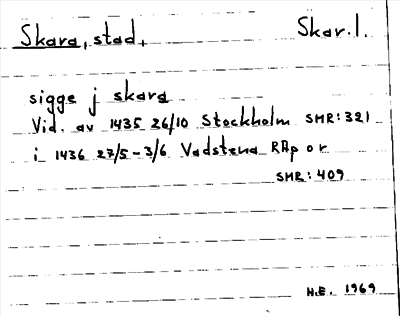 Skara, stad, Skar. l.
sigge j skara
Vid. av 1435 26/10 Stockholm SMR: 321
i 1436 27/5 - 3/6 Vadstena RAp or
SMR: 409
H.E. 1969